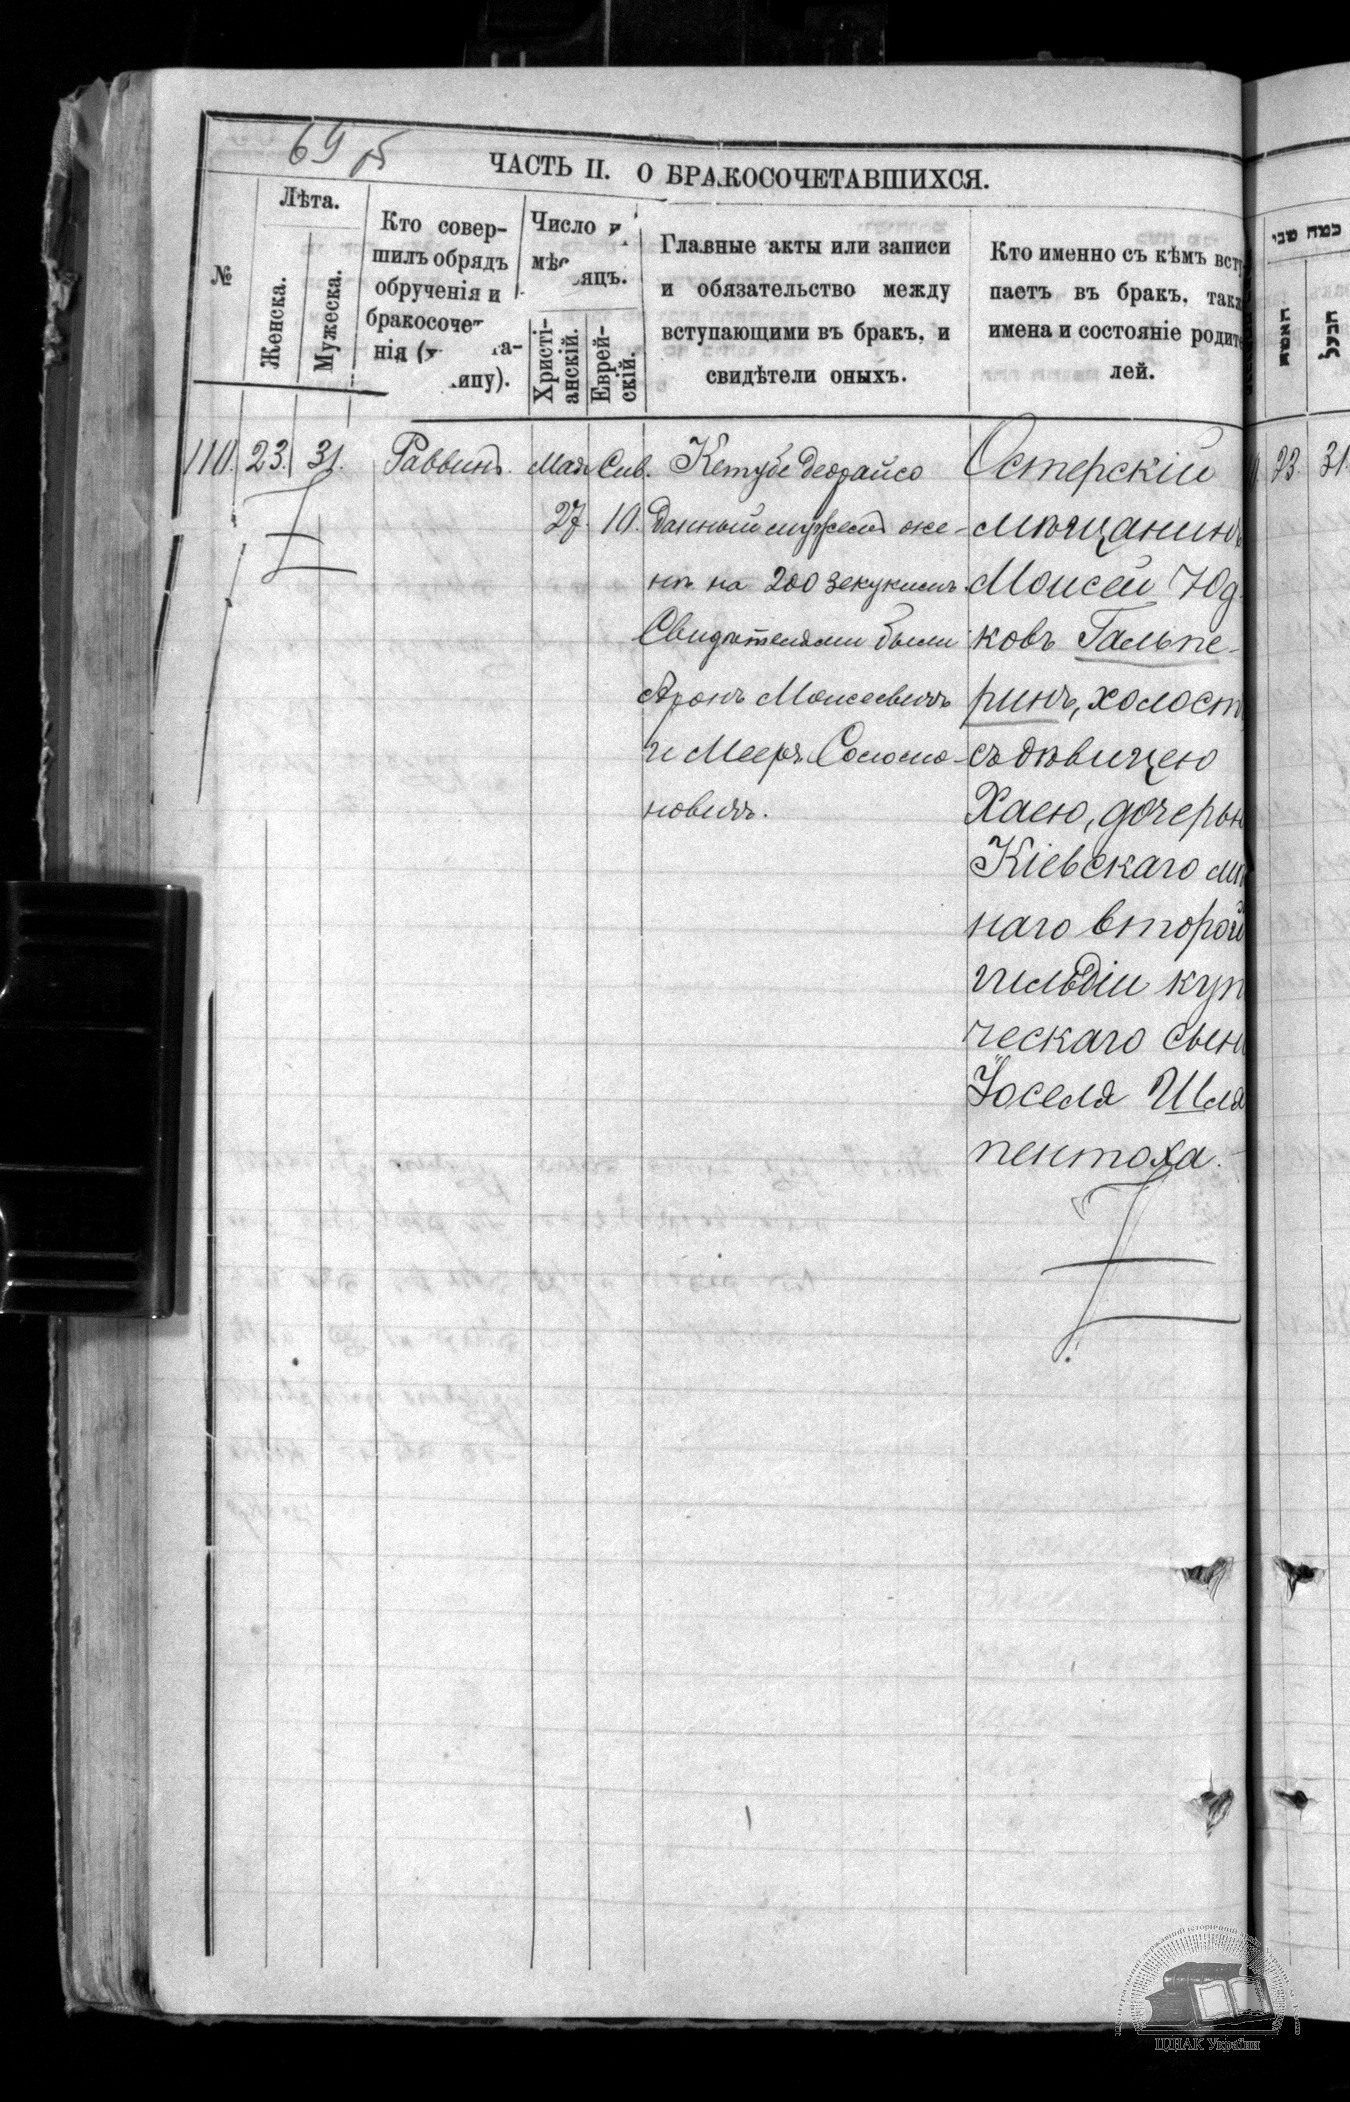 69 об
ЧАСТЬ II. О БРАКОСОЧЕТАВШИХСЯ.
№
Лѣта.
Женска.
Мужеска.
Кто совер-
шилъ обрядъ
обрученія и
бракосочет
нія (х та-
ипу).
Число и
мѣс
яцъ.
Христі-
анскій.
Еврей-
скій.
Главные акты или записи
и обязательство между
вступающими въ бракъ, и
свидѣтели оныхъ.
Кто именно съ кѣмъ всту
паетъ въ бракъ, такж
имена и состояніе родите
лей.
כמה שני
האשה
הבעל
110. 23. 31. Раввинъ. Мая Сив.
27. 10.
Кетубе деорайсо
данный мужемъ же-
нѣ на 200 зекукимъ.
Свидѣтелями были
Аронъ Моисеевичъ
и Мееръ Соломо-
новичъ.
Остерскій
мѣщанинъ
Моисей Юд
ковъ Гальпе-
ринъ, холост
съ дѣвицею
Хаею, дочерью
Кіевскаго
наго второй
гильдіи куп
ческаго сына
Іоселя Шля
пентоха.
23. 31.
ЦДІАК України